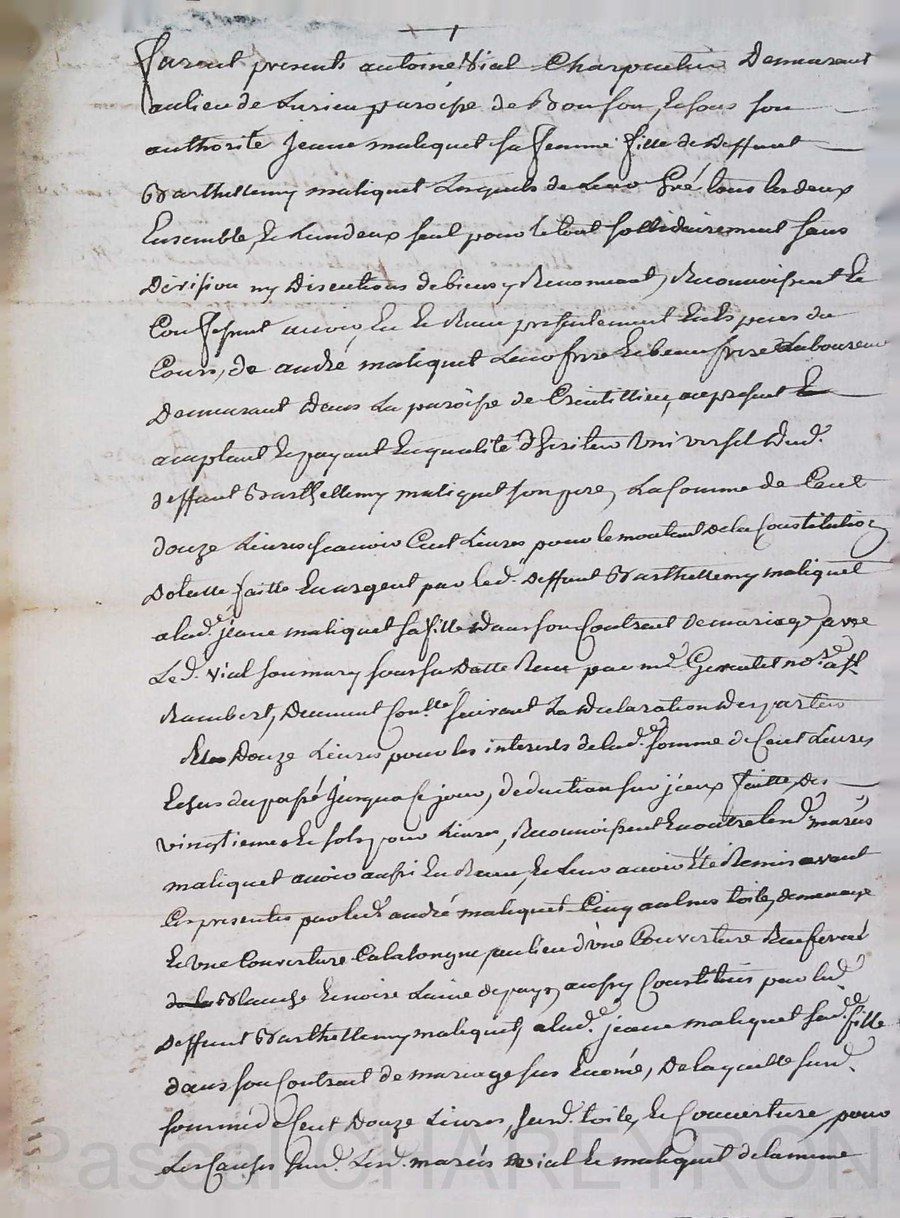 furent presents antoine Vial Charpentier Demeurant
au lieu de Lurieu paroisse de Bonson, et sous son
authorité jeane maliquet sa femme fille de deffunt
Barthellemy maliquet Lesquels de Leur Gré tous les deux
Ensemble, et Lun deux seul pour le tout sollidairement sans
Division ny Discutions de biens y Renonceant, Reconnoissent et
Confessent avoir Eu et Receu presentement En Especes du
Cours, de andré maliquet Leur frere et beau frere Laboureur
Demeurant Dans La paroisse de Craintillieu, acepresent et
aceptant et payant En qualité d'heritier Universel dud.
deffunt Barthellemy maliquet son pere, La somme de Cent
douze Livres scavoir Cent Livres pour le montant de la Constitution
Dotalle faitte En argent par led. deffunt Barthellemy maliquet
a lad. jeane maliquet sa fille dans son Contrat de mariage avec
Led. Vial son mary sous sa Datte Receu par me nore a st
Rambert, Deument Contlé suivant La declaration des parties
Et Douze Livres pour les interets de lad. somme de Cent Livres
Echus du passé jusqua ce jour, deduction sur jceux faitte, des
vingtiemes et sols pour Livres, Reconnoissent En outre lesd. mariés
maliquet avoir aussi Eu Receu, et Leur avoir Eté Remis avant
Ces presentes par led. andré maliquet Cinq aulnes toile de menage
Et Une Couverture Catalongne au lieu d'Une Couverture
Blanche Et noire Laine de pays, aussy Constitués par led.
deffunt Barthellemy maliquet, a lad. jeane maliquet sad. fille
dans son Contrat de mariage sus Enoncé, De laquelle susd.
somme de Cent Douze Livres, susd. toile, et Couverture, pour
Les Causes susd. Lesd. mariés Vial et maliquet de la meme
Pascal CHAREYRON